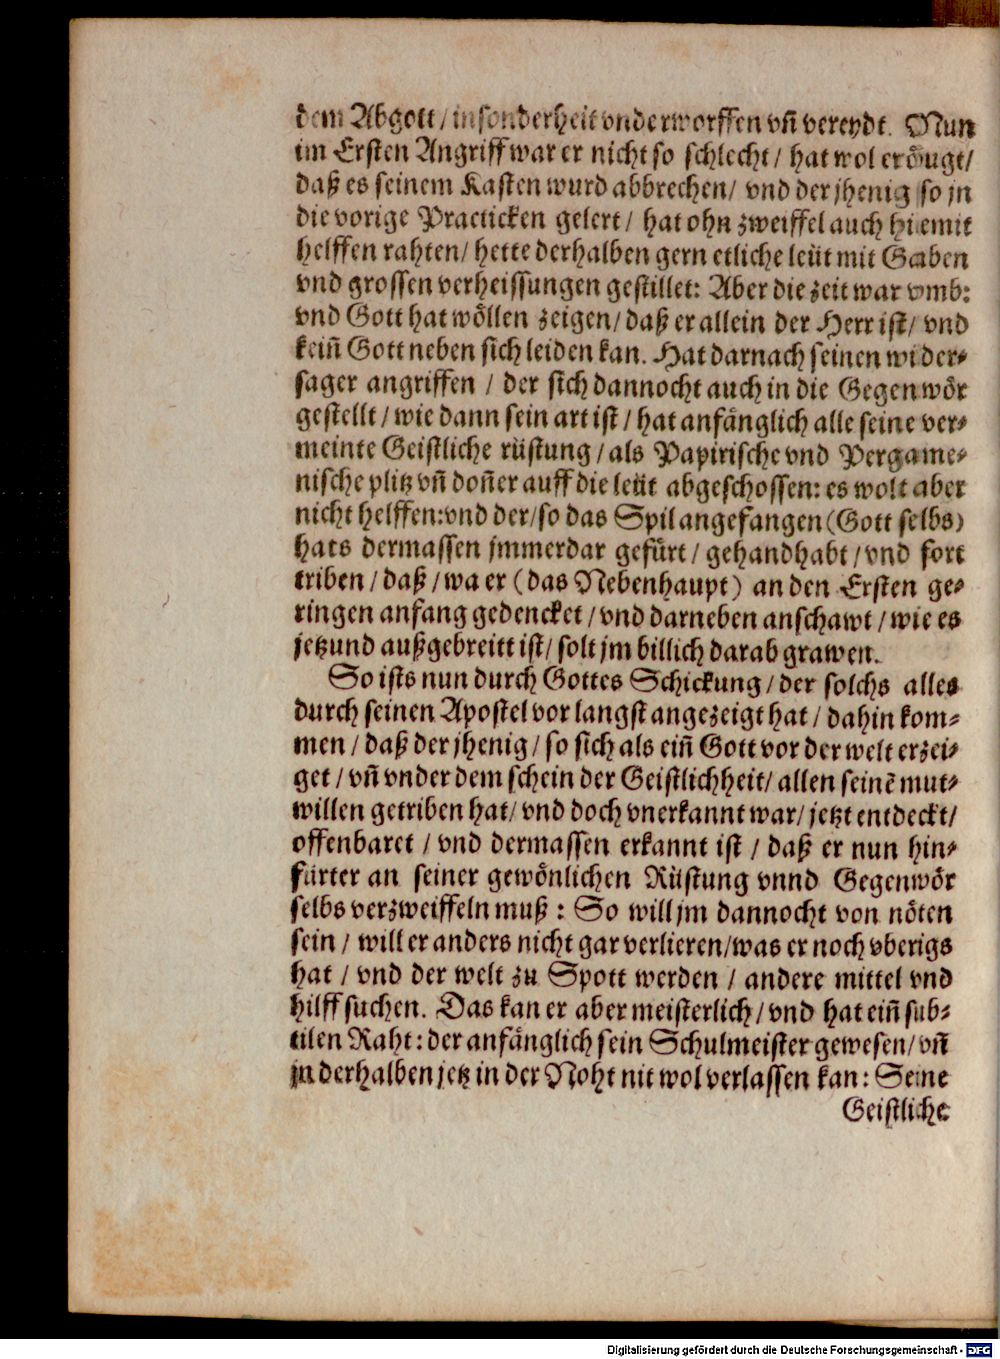 dem Abgott / in sonderheit vnderworffen vñ vereydt. Nun
im Ersten Angriff war er nicht so schlecht / hat wol eröugt /
daß es seinem Kasten wurd abbrechen / vnd der jhenig so jn
die vorige Practicken gelert / hat ohn zweiffel auch hiemit
helffen rahten / hette derhalben gern etliche leüt mit Gaben
vnd grossen verheissungen gestillet: Aber die zeit war vmb:
vnd Gott hat wöllen zeigen / daß er allein der Herr ist / vnd
keiñ Gott neben sich leiden kan. Hat darnach seinen wider⸗
sager angriffen / der sich dannocht auch in die Gegenwör
gestellt / wie dann sein art ist / hat anfänglich alle seine ver⸗
meinte Geistliche rüstung / als Papirische vnd Pergame⸗
nische plitz vñ doñer auff die leüt abgeschossen: es wolt aber
nicht helffen: vnd der / so das Spil angefangen (Gott selbs)
hats dermassen jmmerdar gefürt / gehandhabt / vnd fort
triben / daß / wa er (das Nebenhaupt) an den Ersten ge⸗
ringen anfang gedencket / vnd darneben anschawt / wie es
jetzund außgebreitt ist / solt jm billich darab grawen.
So ists nun durch Gottes Schickung / der solchs alles
durch seinen Apostel vor langst angezeigt hat / dahin kom⸗
men / daß der jhenig / so sich als eiñ Gott vor der welt erzei⸗
get / vñ vnder dem schein der Geistlichheit / allen seinē mut⸗
willen getriben hat / vnd doch vnerkannt war / jetzt entdeckt /
offenbaret / vnd dermassen erkannt ist / daß er nun hin⸗
fürter an seiner gewönlichen Rüstung vnnd Gegenwör
selbs verzweiffeln muß : So will jm dannocht von nöten
sein / will er anders nicht gar verlieren / was er noch vberigs
hat / vnd der welt zu Spott werden / andere mittel vnd
hilff suchen. Das kan er aber meisterlich / vnd hat eiñ sub⸗
tilen Raht: der anfänglich sein Schulmeister gewesen / vñ
jn derhalben jetz in der Noht nit wol verlassen kan: Seine
Geistliche
Digitalisierung gefördert durch die Deutsche Forschungsgemeinschaft - DFG